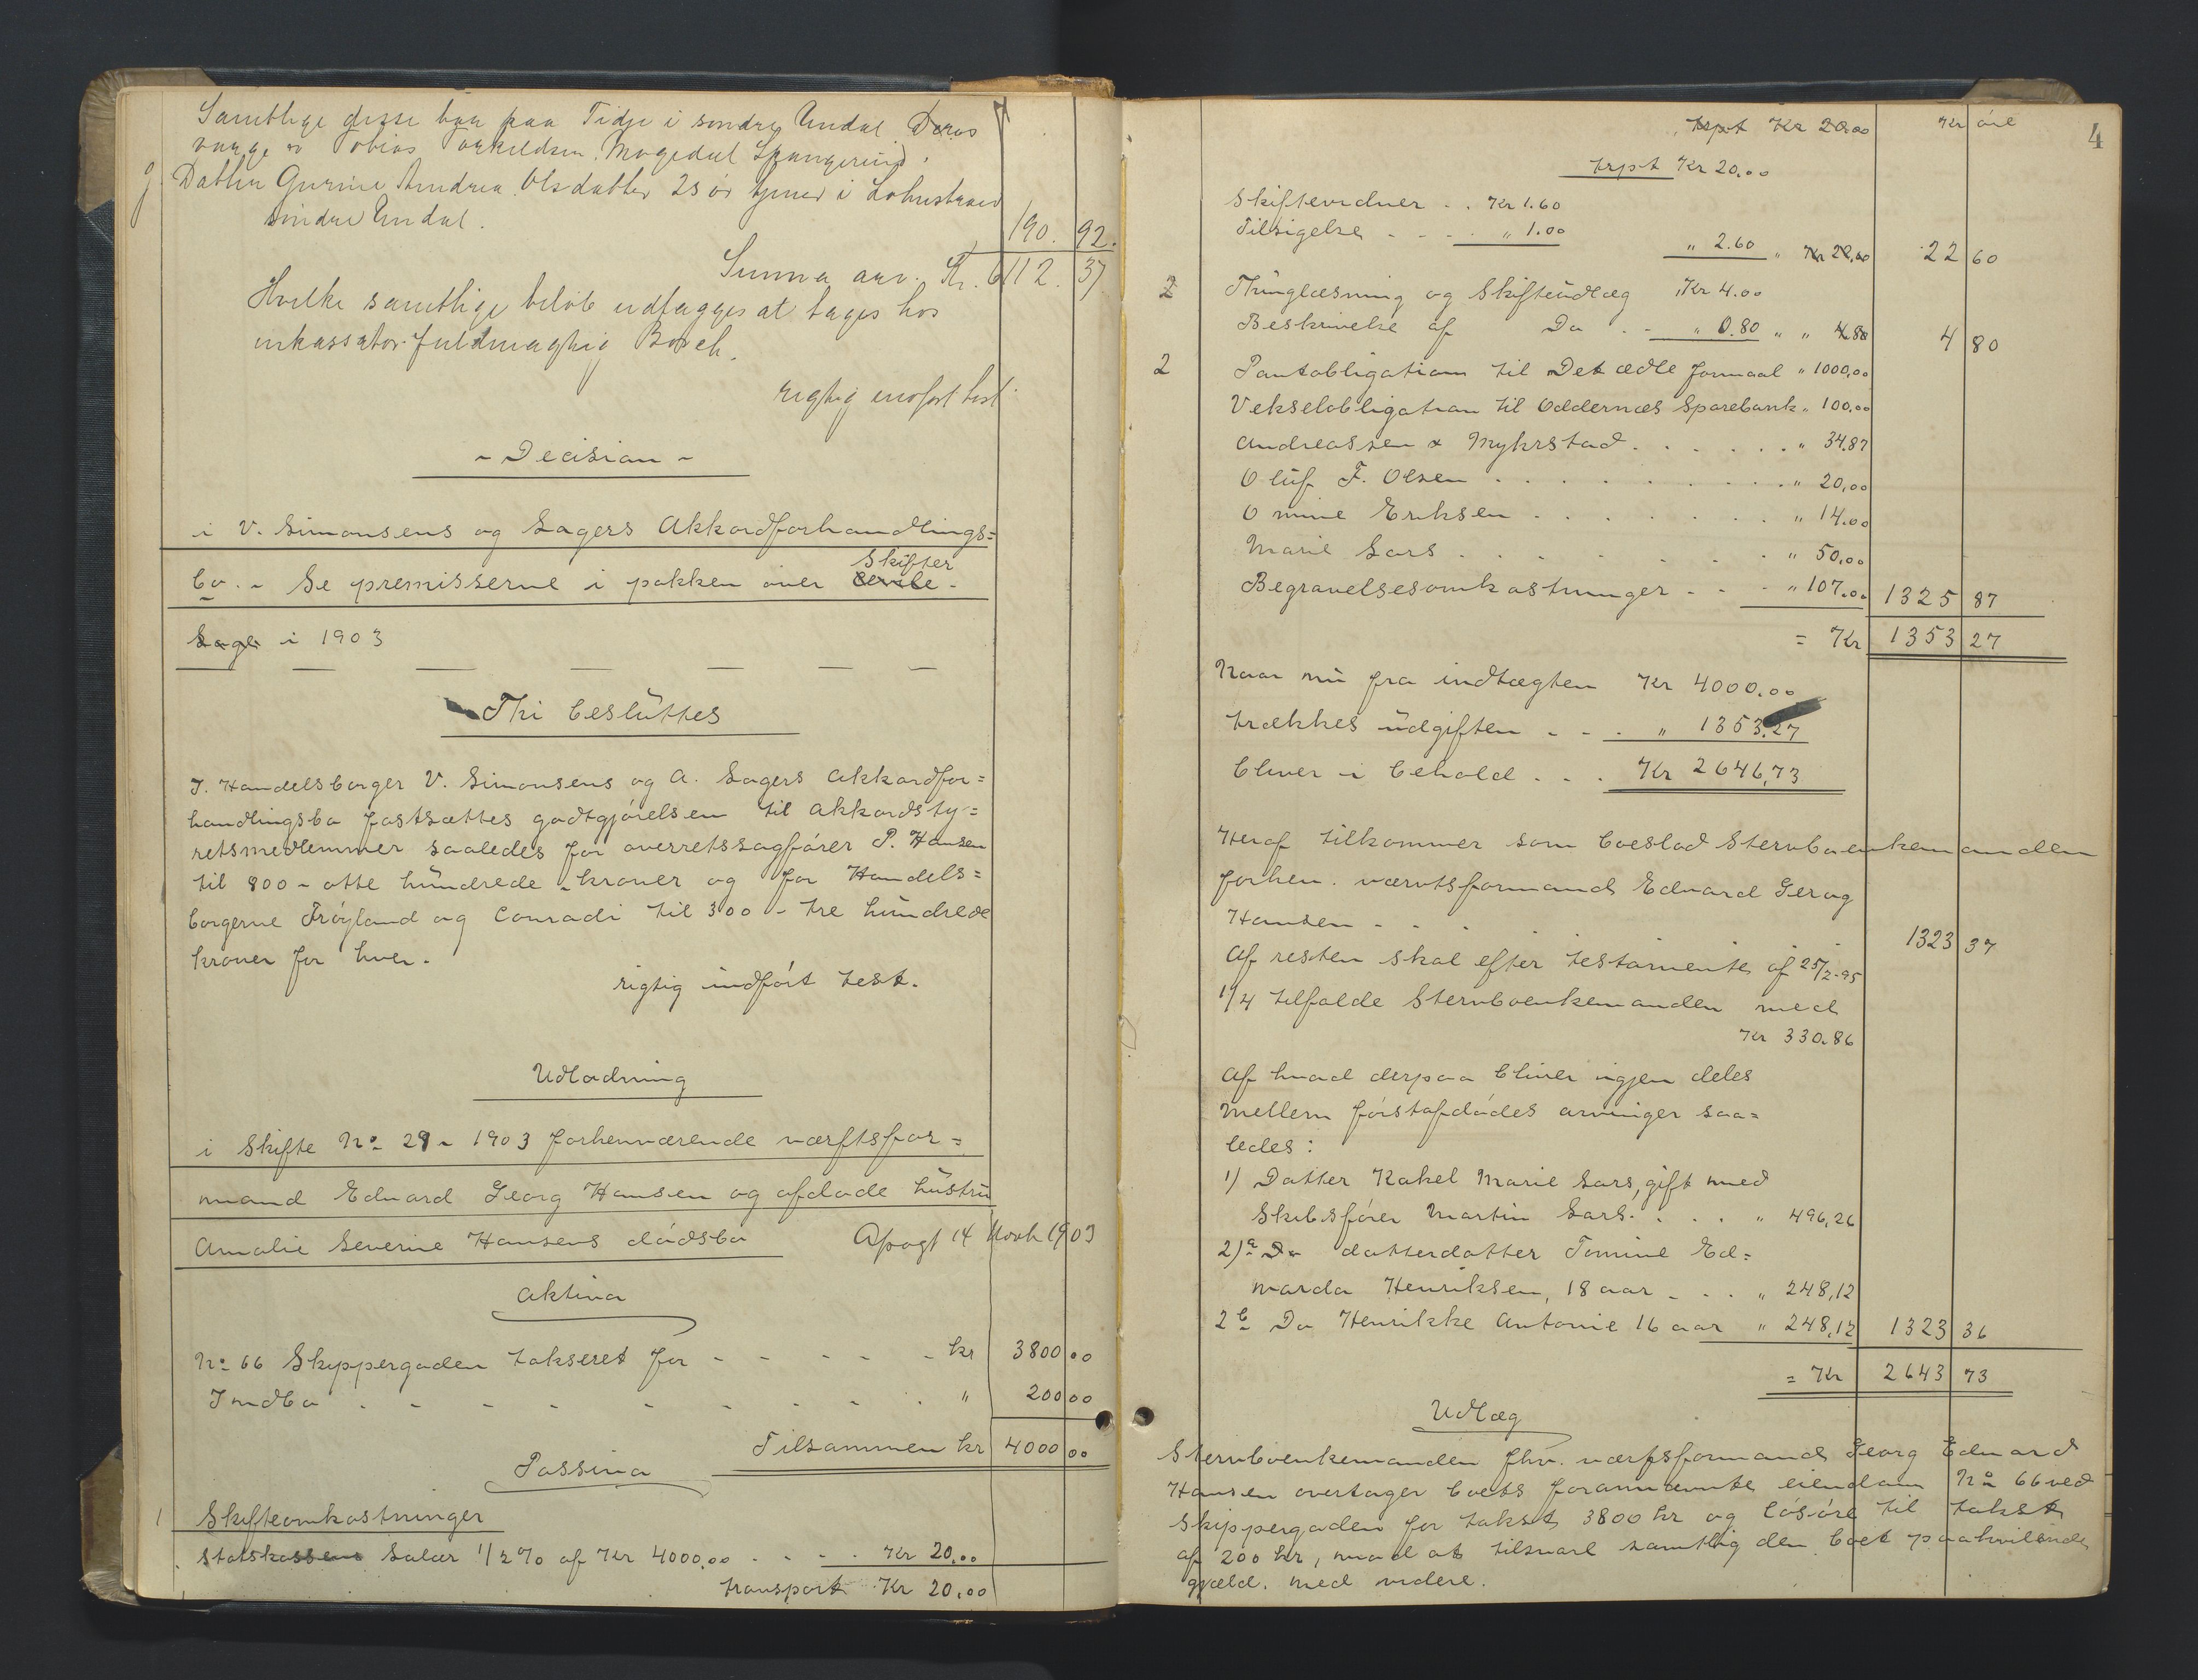 Samtlige disse boa paa Tidje i søndre Undal Deres
værge er Tobias Torkildsen. Mogedal Spangereid.
g. Datter Gurine Andrea Olsdatter 23 år tjener i
søndre Undal. 190. 92.
Summa arv. Kr. 6112. 37
Hvilke samtlige beløb udlægges at tages hos
inkassator fuldmægtig Boych.
rigtig indført test.
- Decision -
i V. Simonsens og Sagers Akkordforhandlings=
bo. - Se premisserne i pakken over Skifter
Sager i 1903
Thi besluttes
I Handelsborger V. Simonsens og A. Sagers akkordfor=
handlingsbo fastsættes godtgjørelsen til akkordsty=
retsmedlemmer saaledes for overretssagfører P. Hansen
til 800 - otte hundrede - kroner og for Handels=
borgerne Frøyland og Conradi til 300 - tre hundrede
kroner for hver.
rigtig indført test.
Udlodning
i Skifte No 29 - 1903 forhenværende værftsfor=
mand Edvard Georg Hansen og afdøde hustru
Amalie Severine Hansens dødsbo Afsagt 14 Novb 1903
Aktiva
No 66 Skippergaden takseret for - - - - - kr 3800 00
Indbo . - - - - - - - . " 200 00
Tilsammen kr 4000 00
Passiva
1 Skifteomkostninger
Statskassens Salær 1/2 % af Kr 4000,00 . - - . Kr 20,00
transport Kr 20,00
trpt Kr 20.00 Kr øre 4
trpt Kr 20.00
Skiftevidner . . Kr 1.60
Tilsigelse - - - . " 1.00
" 2.60 " Kr 22,60 22 60
2 Thinglæsning og Skifteudlæg Kr 4.00
Beskrivelse af Do . - " 0.80 " " 4,80 4 80
2 Pantobligation til Det ædle formaal " 1000,00
Vekselobligation til Oddernæs Sparebank " 100,00
Andreassen & Mykrstad . . . . . . " 34.87
Oluf F. Olsen . . . . . . . . . . " 20,00
Omine Eriksen . . . . . . . " 14.00
Marie Sars . . . . . . . " 50,00
Begravelsesomkostninger - - - " 107.00 1325 87
= Kr 1353 27
Naar nu fra indtægten Kr 4000.00
trækkes udgiften - - . " 1353.27
bliver i behold . . . Kr 2646,73
Heraf tilkommer som boeslod Stervboenkemanden
forhen. værvtsformand Edvard Gerog
Hansen - - . . 1323 37
Af resten skal efter testamente af 25/2-95
1/4 tilfalde Stervboenkemanden med
Kr 330.86
Af hvad derpaa bliver igjen deles
mellem førstafdødes arvinger saa=
ledes:
1) Datter Rakel Marie Sars, gift med
Skibsfører Martin Sars. . . . " 496,26
2)a Do datterdatter Tomine Ed=
varda Henriksen, 18 aar - . . " 248,12
2b Do Henrikke Antonie 16 aar " 248,12 1323 36
= Kr 2643 73
Udlæg
Stervboenkemanden fhv. værfsformand Georg Edvard
Hansen overtager boets forannævnte eiendom No 66 ved
Skippergaden for takst 3800 kr og løsøre til takst
af 200 kr, mod at tilsvare samtlig den boet paahvilende
gjæld. med videre.